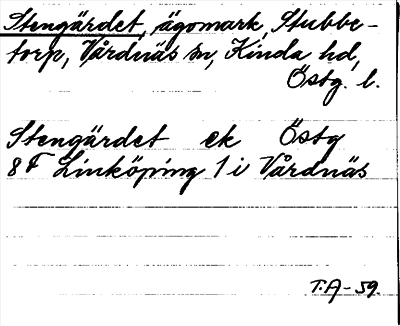 Stengärdet, ägomark, Stubbe-
torp, Vårdnäs sn, Kinda hd,
Östg. l.
Stengärdet ek Östg
8 F Linköping 1 i Vårdnäs
T.A-59.